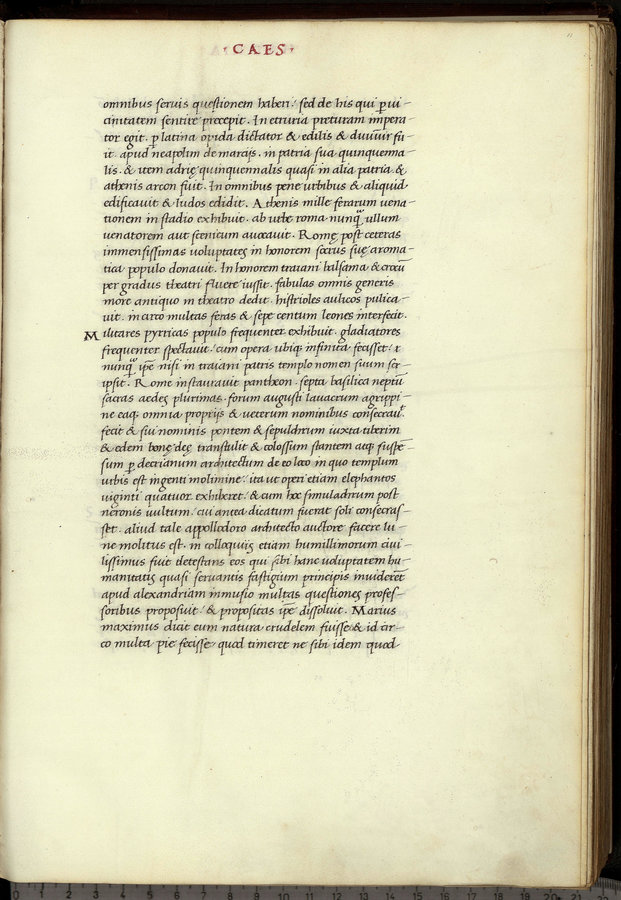 · CAES ·
11
omnibus seruis questionem haberi / sed de his qui ꝑ ui-
cinitatem sentire precepit . In etruria preturam impera
tor egit . ꝑ latina opida dictator & edilis & duuiur fu
it . apud neapolim demarcus . in patria sua quinquenna-
lis . & item adrię quinquennalis quasi in alia patria &
athenis arcon fuit . In omnibus pene urbibus & aliquid
edificauit & ludos edidit . Athenis mille ferarum uena-
tionem in stadio exhibuit . ab urbe roma nunq̄ ullum
uenatorem aut scenicum auocauit . Romę post ceteras
immensissimas uoluptates in honorem socrus suę aroma-
tica populo donauit . In honorem traiani balsama & crocū
per gradus theatri fluere iussit . fabulas omnis generis
more antiquo in theatro dedit . histriones aulicos publica-
uit . in circo multas feras & sepe centum leones interfecit .
Militares pyrricas populo frequenter exhibuit . gladiatores
frequenter spectauit / cum opera ubiq; infinita fecisset /
nunq̄ ipē nisi in traiani patris templo nomen suum scr
ipsit . Rome instaurauit pantheon . septa basilica neptū
sacras aedes plurimas . forum augusti lauacrum agrippi-
ne eaq; omnia proprijs & ueterum nominibus consecrauit
fecit & sui nominis pontem & sepulchrum iuxta tiberim
& edem bonę deę transtulit & colossum stantem atq; suspē-
sum ꝑ decrianum architectum de eo loco in quo templum
urbis est ingenti molimine / ita ut operi etiam elephantos
uiginti quatuor exhiberet / & cum hoc simulachrum post
neronis uultum / cui antea dicatum fuerat soli consecras-
set . aliud tale appollodoro architecto auctore facere lu-
ne molitus est . in colloquijs etiam humillimorum ciui-
lissimus fuit detestans eos qui sibi hanc uoluptatem hu-
manitatis quasi seruantis fastigium principis inuiderēt
apud alexandriam in musio multas questiones profes-
soribus proposuit / & propositas ipē dissoluit . Marius
maximus dicit eum natura crudelem fuisse / & id cir-
co multa pie fecisse / quod timeret ne sibi idem quod